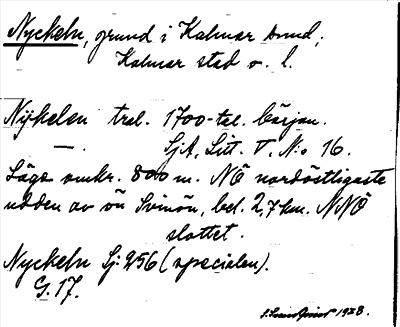 Nyckeln, grund i Kalmar sund,
Kalmar stad o. l.
Nÿkelen tral. 1700-tal. början.
— . SjA, Litt. V, N:o 16.
Läge omkr. 800 m. NÖ nordöstligaste
udden av ön Svinön, bel. 2,7 km. NNÖ
slottet.
Nyckeln Sj: 256 (specialen).
G. 17.
1928.